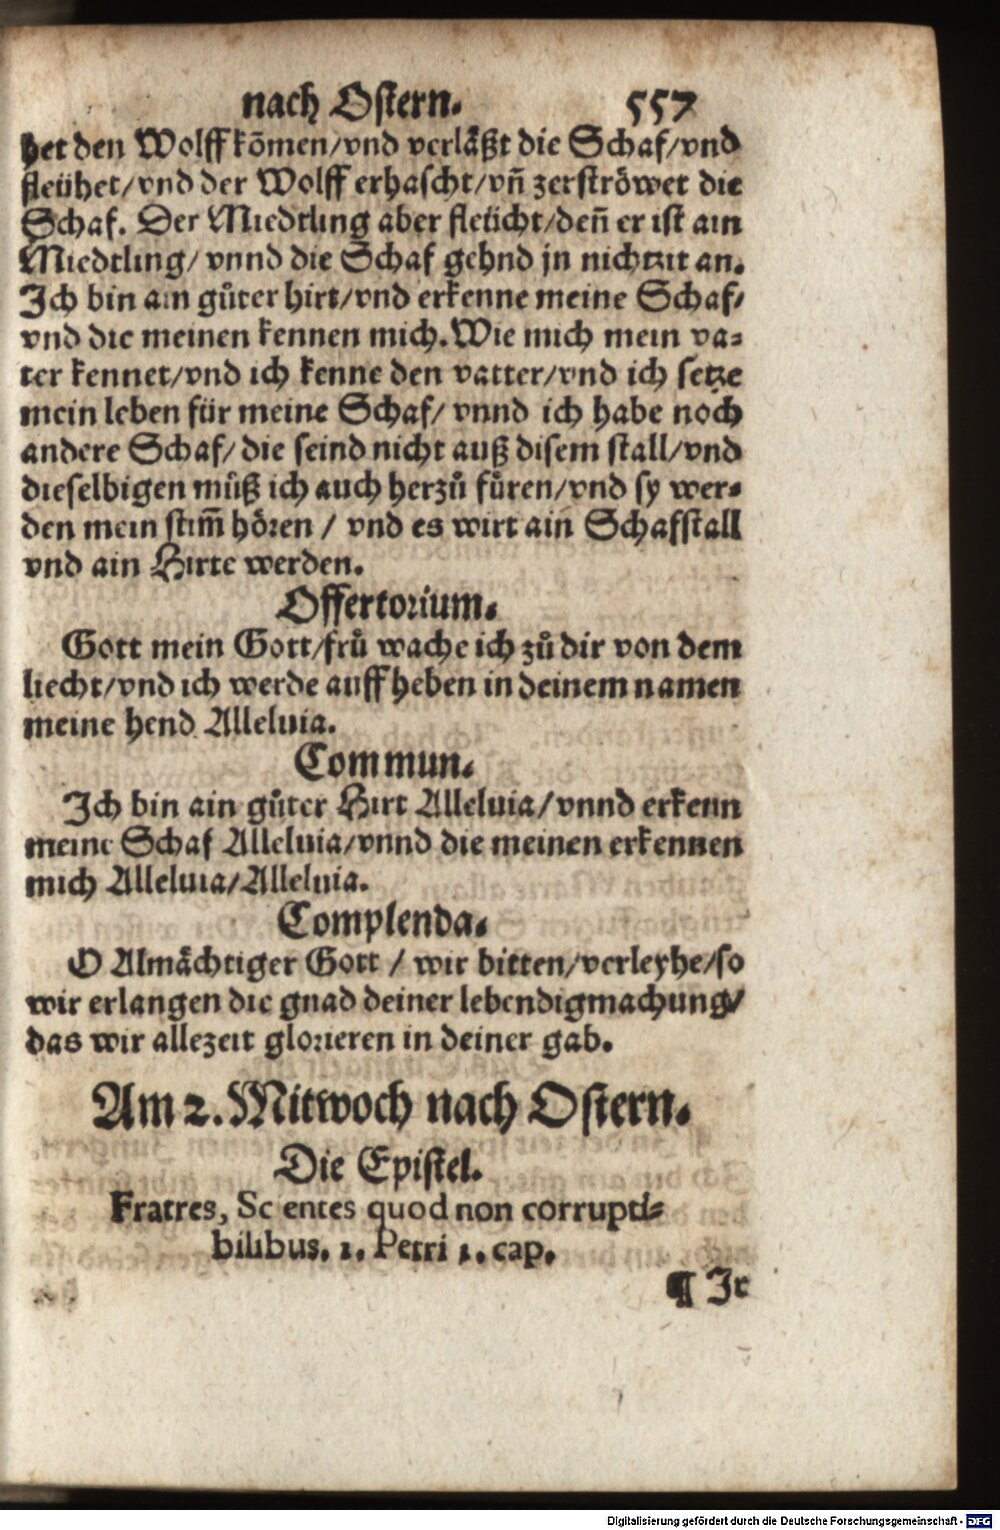 nach Ostern. 557
het den Wolff kõmen/vnd verläßt die Schaf/vnd
fleühet/vnd der Wolff erhascht/vñ zerströwet die
Schaf. Der Miedtling aber fleücht/deñ er ist ain
Miedtling/ vnnd die Schaf gehnd jn nichtzit an.
Ich bin ain gůter hirt/vnd erkenne meine Schaf/
vnd die meinen kennen mich. Wie mich mein va=
ter kennet/vnd ich kenne den vatter/vnd ich setze
mein leben für meine Schaf/ vnnd ich habe noch
andere Schaf/ die seind nicht auß disem stall/vnd
dieselbigen můß ich auch herzů fůren/vnd sy wer=
den mein stim̃ hören / vnd es wirt ain Schafstall
vnd ain Hirte werden.
Offertorium.
Gott mein Gott/frů wache ich zů dir von dem
liecht/vnd ich werde auff heben in deinem namen
meine hend Alleluia.
Commun.
Ich bin ain gůter Hirt Alleluia/vnnd erkenn
meine Schaf Alleluia/vnnd die meinen erkennen
mich Alleluia/Alleluia.
Complenda.
O Almächtiger Gott / wir bitten/verleyhe/so
wir erlangen die gnad deiner lebendigmachung/
das wir allezeit glorieren in deiner gab.
Am 2. Mitwoch nach Ostern.
Die Epistel.
Fratres, Scientes quod non corrupti=
bilibus. 1. Petri 1. cap.
¶ Ir
Digitalisierung gefördert durch die Deutsche Forschungsgemeinschaft - DFG